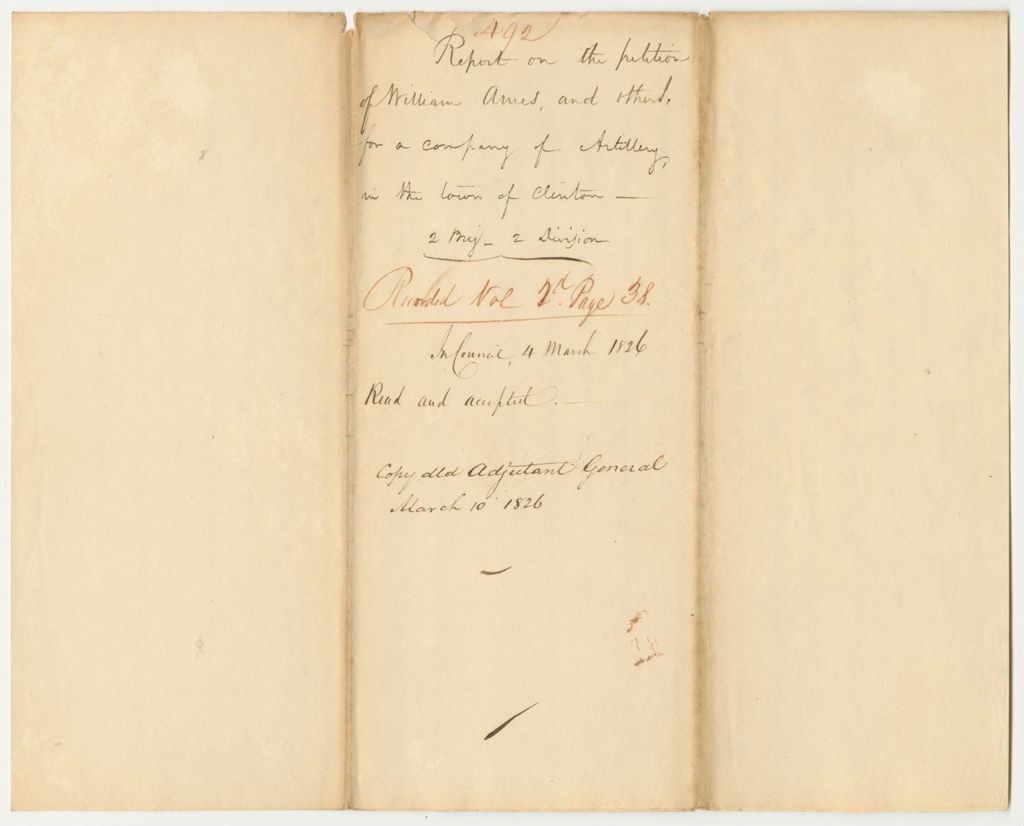 492
Report on the petition
of William Ames, and others,
for a company of Artillery,
in the town of Clinton —
2 Brig - 2 Division
Recorded Vol 2d. Page 38.
In Council, 4 March 1826
Read and accepted. —
Copy dld Adjutant General
March 10 1826